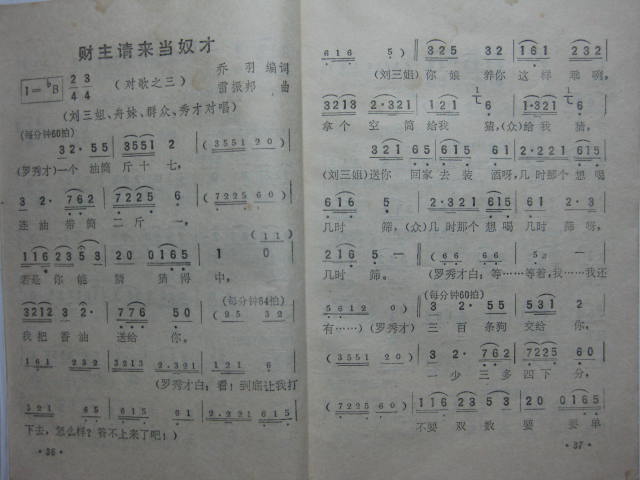 财主请来当奴才
1=♭B 2/4 3/4
(对歌之三)
乔羽 编词
雷振邦 曲
(刘三姐、舟妹、群众、秀才对唱)
(每分钟60拍)
3 2· 5 5 3551 2 (3551 20)
(罗秀才)一个 油筒 斤十七,
3 2· 762 7225 6 (7225 60)
连油 带筒 二斤 一,
(11)
116 23 53 231216 1 0
若是你能 猜 猜得 中,
(每分钟64拍)
3212 3 2· 776 50 (25 32
我把 香油 送给 你。
161 232 3213 2·321 121 6
(罗秀才白:看!到底让我打
321 65 615 1 2 2·221 615
下去,怎么样?答不上来了吧!)
·36·
616 5) 325 32 161 232
(刘三姐)你 娘 养你 这样 乖啊,
3213 2·321 1 6 1·321 6
拿个 空筒 给我 猜,(众)给我 猜,
(刘三姐)送你 回家 去装 酒呀,几时那个 想喝
几时 筛,(众)几时那个 想喝 几时 筛呀,
216 5 —
几时 筛。 (罗秀才白:等……等着,我……我还
(每分钟60拍)
(5612 0) 3 2· 55 531 2
有……)(罗秀才) 三 百 条狗 交给 你,
(3551 20) 3 2· 762 7225 60
一 少 三 多 四下 分,
(7225 60) 116 23 53 20 0165
不要 双数 要 要单
·37·